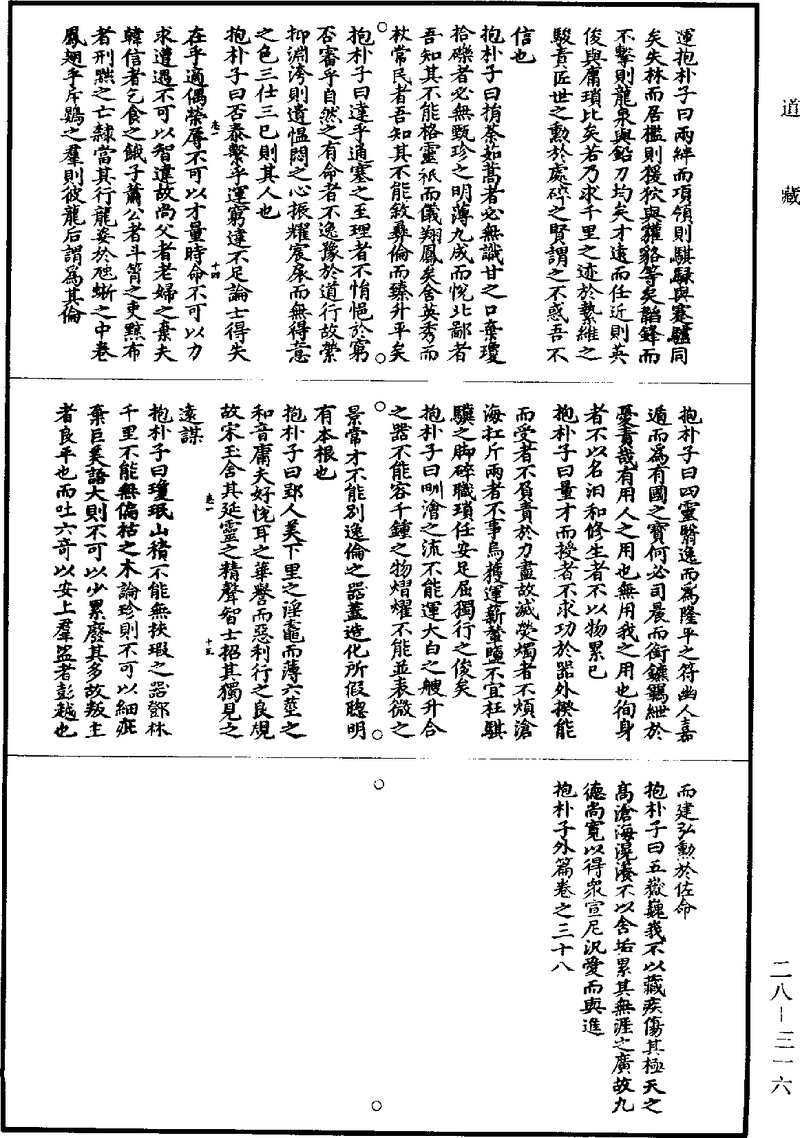 道藏
運抱朴子曰兩絆而項領則騏騄與蹇驢同
矣失林而居檻則猨狖與貛貉等矣韜鋒而
不擊則龍泉與鉛刀均矣才遠而任近則英
俊與庸瑣比矣若乃求千里之迹於縶維之
駿責匠世之勳於處碎之賢謂之不惑吾不
信也
抱朴子曰捐荼茹蒿者必無識甘之口棄瓊
拾礫者必無甄珍之明薄九成而悅北鄙者
吾知其不能格靈祇而儀翔鳳矣舍英秀而
杖常民者吾知其不能敘彞倫而臻升平矣
抱朴子曰達乎通塞之至理者不悁悒於窮
否審乎自然之有命者不逸豫於道行故縈
抑淵洿則遺慍悶之心振耀宸扆而無得意
之色三仕三已則其人也
抱朴子曰否泰繫乎運窮達不足論士得失
在乎適偶榮辱不可以才量時命不可以力
卷一 十四
求遭遇不可以智違故尚父者老婦之棄夫
韓信者乞食之餓子蕭公者斗筲之吏黥布
者刑黥之亡隸當其行龍姿於虺蜥之中卷
鳳翅乎斥鷃之羣則彼龍后謂爲其倫
抱朴子曰四靈翳逸而爲隆平之符幽人嘉
遁而爲有國之寶何必司晨而銜鑣羈紲於
憂責哉有用人之用也無用我之用也徇身
者不以名汩和修生者不以物累已
抱朴子曰量才而授者不求功於器外揆能
而受者不負責於力盡故滅熒燭者不煩滄
海扛斤兩者不事烏獲運薪輦鹽不宜枉騏
驥之脚碎職瑣任安足屈獨行之俊矣
抱朴子曰甽澮之流不能運大白之艘升合
之器不能容千鍾之物熠燿不能並表微之
景常才不能別逸倫之器蓋造化所假聰明
有本根也
抱朴子曰郢人美下里之淫鼃而薄六莖之
和音庸夫好悅耳之華譽而惡利行之良規
故宋玉舍其延靈之精聲智士招其獨見之
卷一 十五
遠謀
抱朴子曰瓊珉山積不能無挾瑕之器鄧林
千里不能無偏枯之木論珍則不可以細疵
棄巨美語大則不可以少累廢其多故叛主
者良平也而吐六奇以安上羣盜者彭越也
而建弘勳於佐命
抱朴子曰五嶽巍峩不以藏疾傷其極天之
高滄海滉瀁不以含垢累其無涯之廣故九
德尚寬以得衆宣尼汎愛而與進
抱朴子外篇卷之三十八
二八－三一六